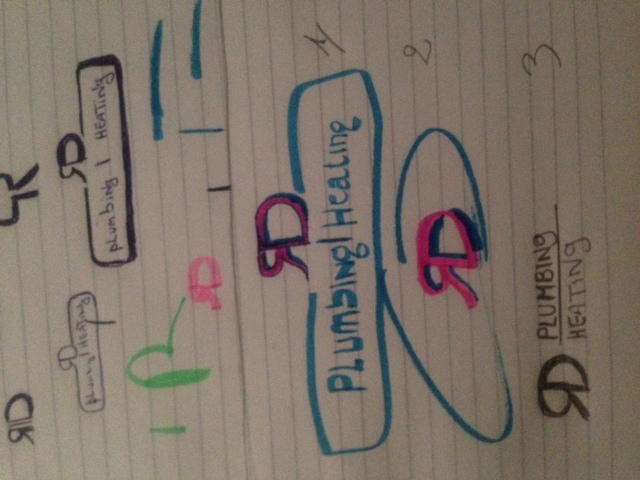 RD
RD
plumbing | HEATING
RD
plumbing | HEATING
R
RD
RD
Plumbing | Heating
1
RD
2
RD
PLUMBING
HEATING
3